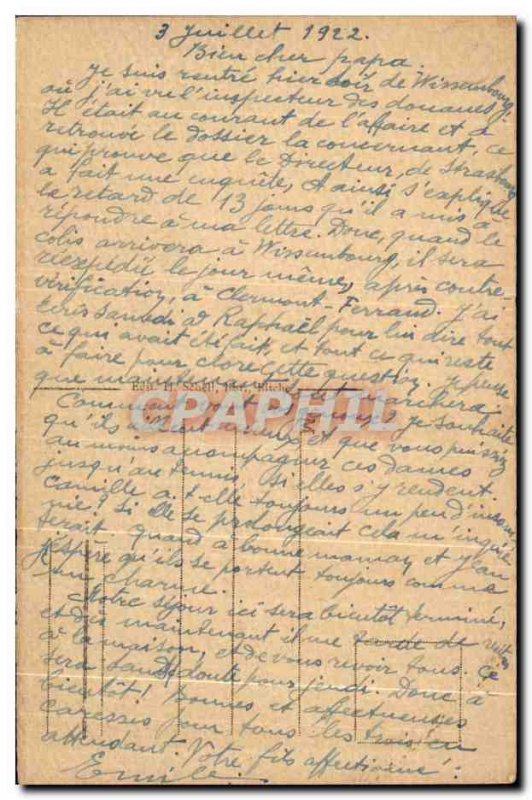 3 Juillet 1922.
Bien cher papa.
Je suis rentré hier soir de Wissembourg,
où j'ai vu l'inspecteur des douanes.
Il était au courant de l'affaire et a
retrouvé le dossier la concernant, ce
qui prouve que le Directeur, de Strasbourg
a fait une enquête, et ainsi s'explique
le retard de 13 jours qu'il a mis à
répondre à ma lettre. Donc, quand le
colis arrivera à Wissembourg, il sera
réexpédié le jour même, après contre-
vérification, à Clermont-Ferrand. J'ai
écris samedi à Raphaël pour lui dire tout
ce qui avait été fait, et tout ce qui reste
à faire pour clore cette question. Je pense
que maintenant marchera.
Comment je souhaite
qu'ils et que vous puissiez
au moins accompagner ces dames
jusqu'au tennis, si elles s'y rendent.
Camille a-t-elle toujours un peu d'insom-
nie? Si elle se prolongeait cela m'inquié-
terait. Quand à bonne maman et
j'espère qu'ils se portent toujours comme
un charme.
Notre séjour ici sera bientôt terminé,
et dès maintenant il me tarde de rentrer
à la maison, et de vous revoir tous. Ce
sera sans doute pour jeudi. Donc à
bientôt! Bonnes et affectueuses
caresses pour tous les trois en
attendant. Votre fils affectionné.
Emile.
CPAPHIL